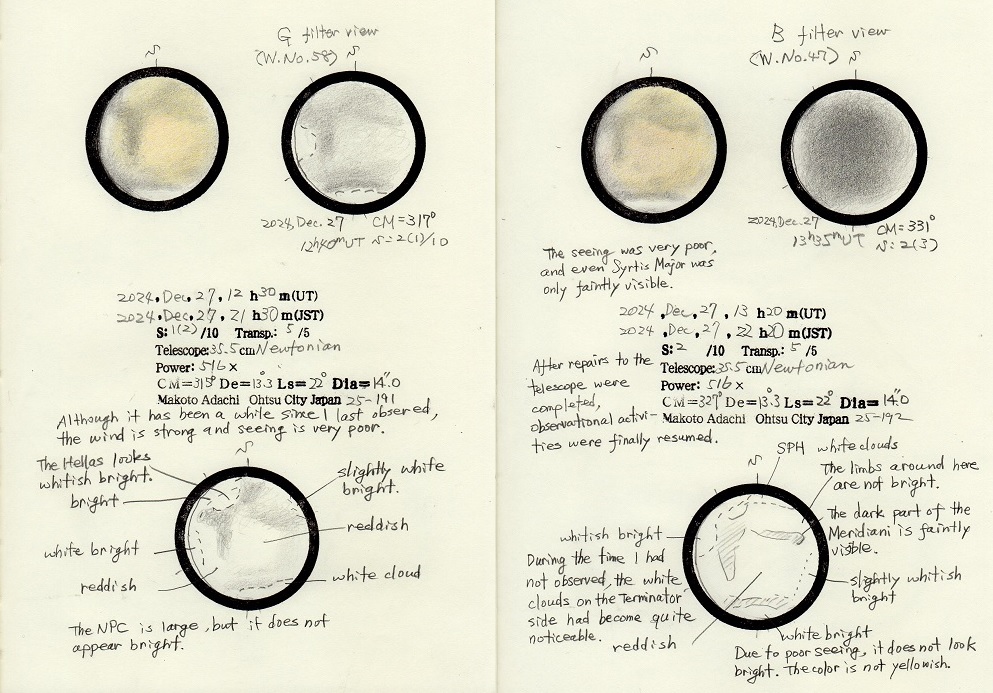 G filter view
(W.No.58)
2024, Dec. 27 CM=317°
12h40mUT S=2(1)/10
2024, Dec, 27, 12 h30 m(UT)
2024, Dec, 27, 21 h30 m(JST)
S: 1(2) /10 Transp.: 5 /5
Telescope:35.5cmNewtonian
Power: 516 x
CM=315° De=13.3° Ls=22° Dia=14".0
Makoto Adachi Ohtsu City Japan 25-191
Although it has been a while since I last obsered,
the wind is strong and seeing is very poor.
The Hellas looks
whitish bright.
bright
white bright
reddish
S
slightly white
bright.
reddish
white cloud
The NPC is large, but it does not
appear bright.
B filter view
(W.No.47)
2024,Dec.27 CM=331°
13h35mUT S=2(3)
The seeing was very poor,
and even Syrtis Major was
only faintly visible.
2024, Dec, 27, 13 h20 m(UT)
2024, Dec, 27, 22 h20 m(JST)
S: 2 /10 Transp.: 5 /5
Telescope:35.5cmNewtonian
Power: 516 x
CM=327° De=13.3 Ls=22° Dia=14".0
Makoto Adachi Ohtsu City Japan 25-192
After repairs to the
telescope were
completed,
observational activi-
ties were finally resumed.
S
SPH white clouds
The limbs around here
are not bright.
The dark part of the
Meridiani is faintly
visible.
slightly whitish
bright
whitish bright
During the time I had
not observed, the white
clouds on the Terminator
side had become quite
noticeable.
reddish
white bright
Due to poor seeing, it does not look
bright. The color is not yellowish.